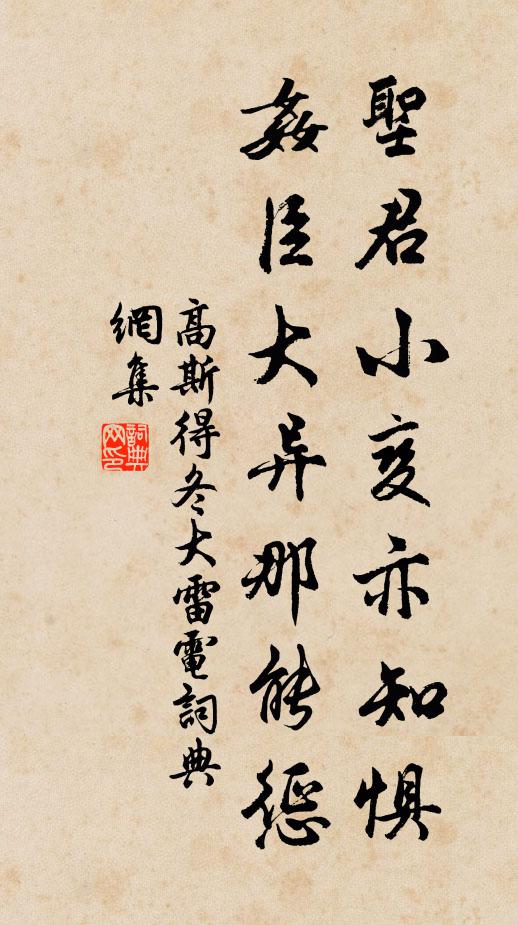 聖君小變亦知懼
姦臣大異那能懲
高斯得冬大雷電詞典
網集
詞典網印